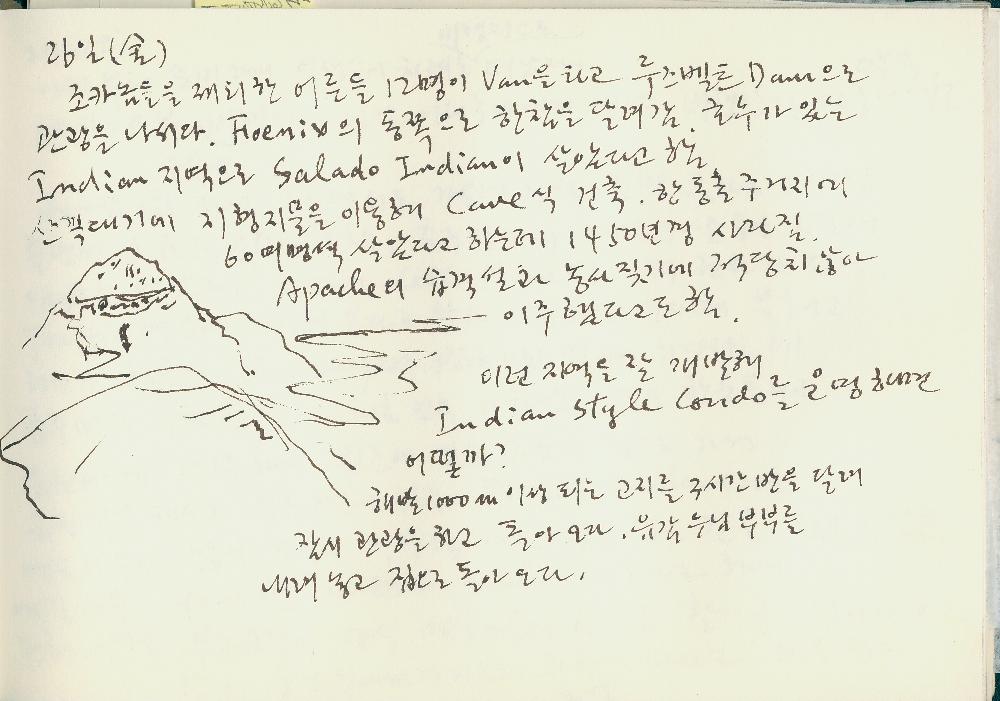 26일(金)
조카놈들을 제외한 어른들 12명이 Van을 타고 루즈벨트 Dam으로
관광을 나서다. Phoenix의 동쪽으로 한참을 달려감. 호수가 있는
Indian 지역으로 Salado Indian이 살았다고 함.
산꼭대기에 지형지물을 이용해 Cave식 건축. 한 동굴 주거지에
60여명씩 살았다고 하는데 1450년경 사라짐.
Apache의 습격설과 농사짓기에 적당치 않아
이주했다고도 함.
이런 지역을 잘 개발해
Indian Style Condo를 운영하면
어떨까?
해발 1000m 이상 되는 고지를 2시간 반을 달려
잠시 관광을 하고 돌아오다. 누님 부부를
내려 놓고 집으로 돌아오다.